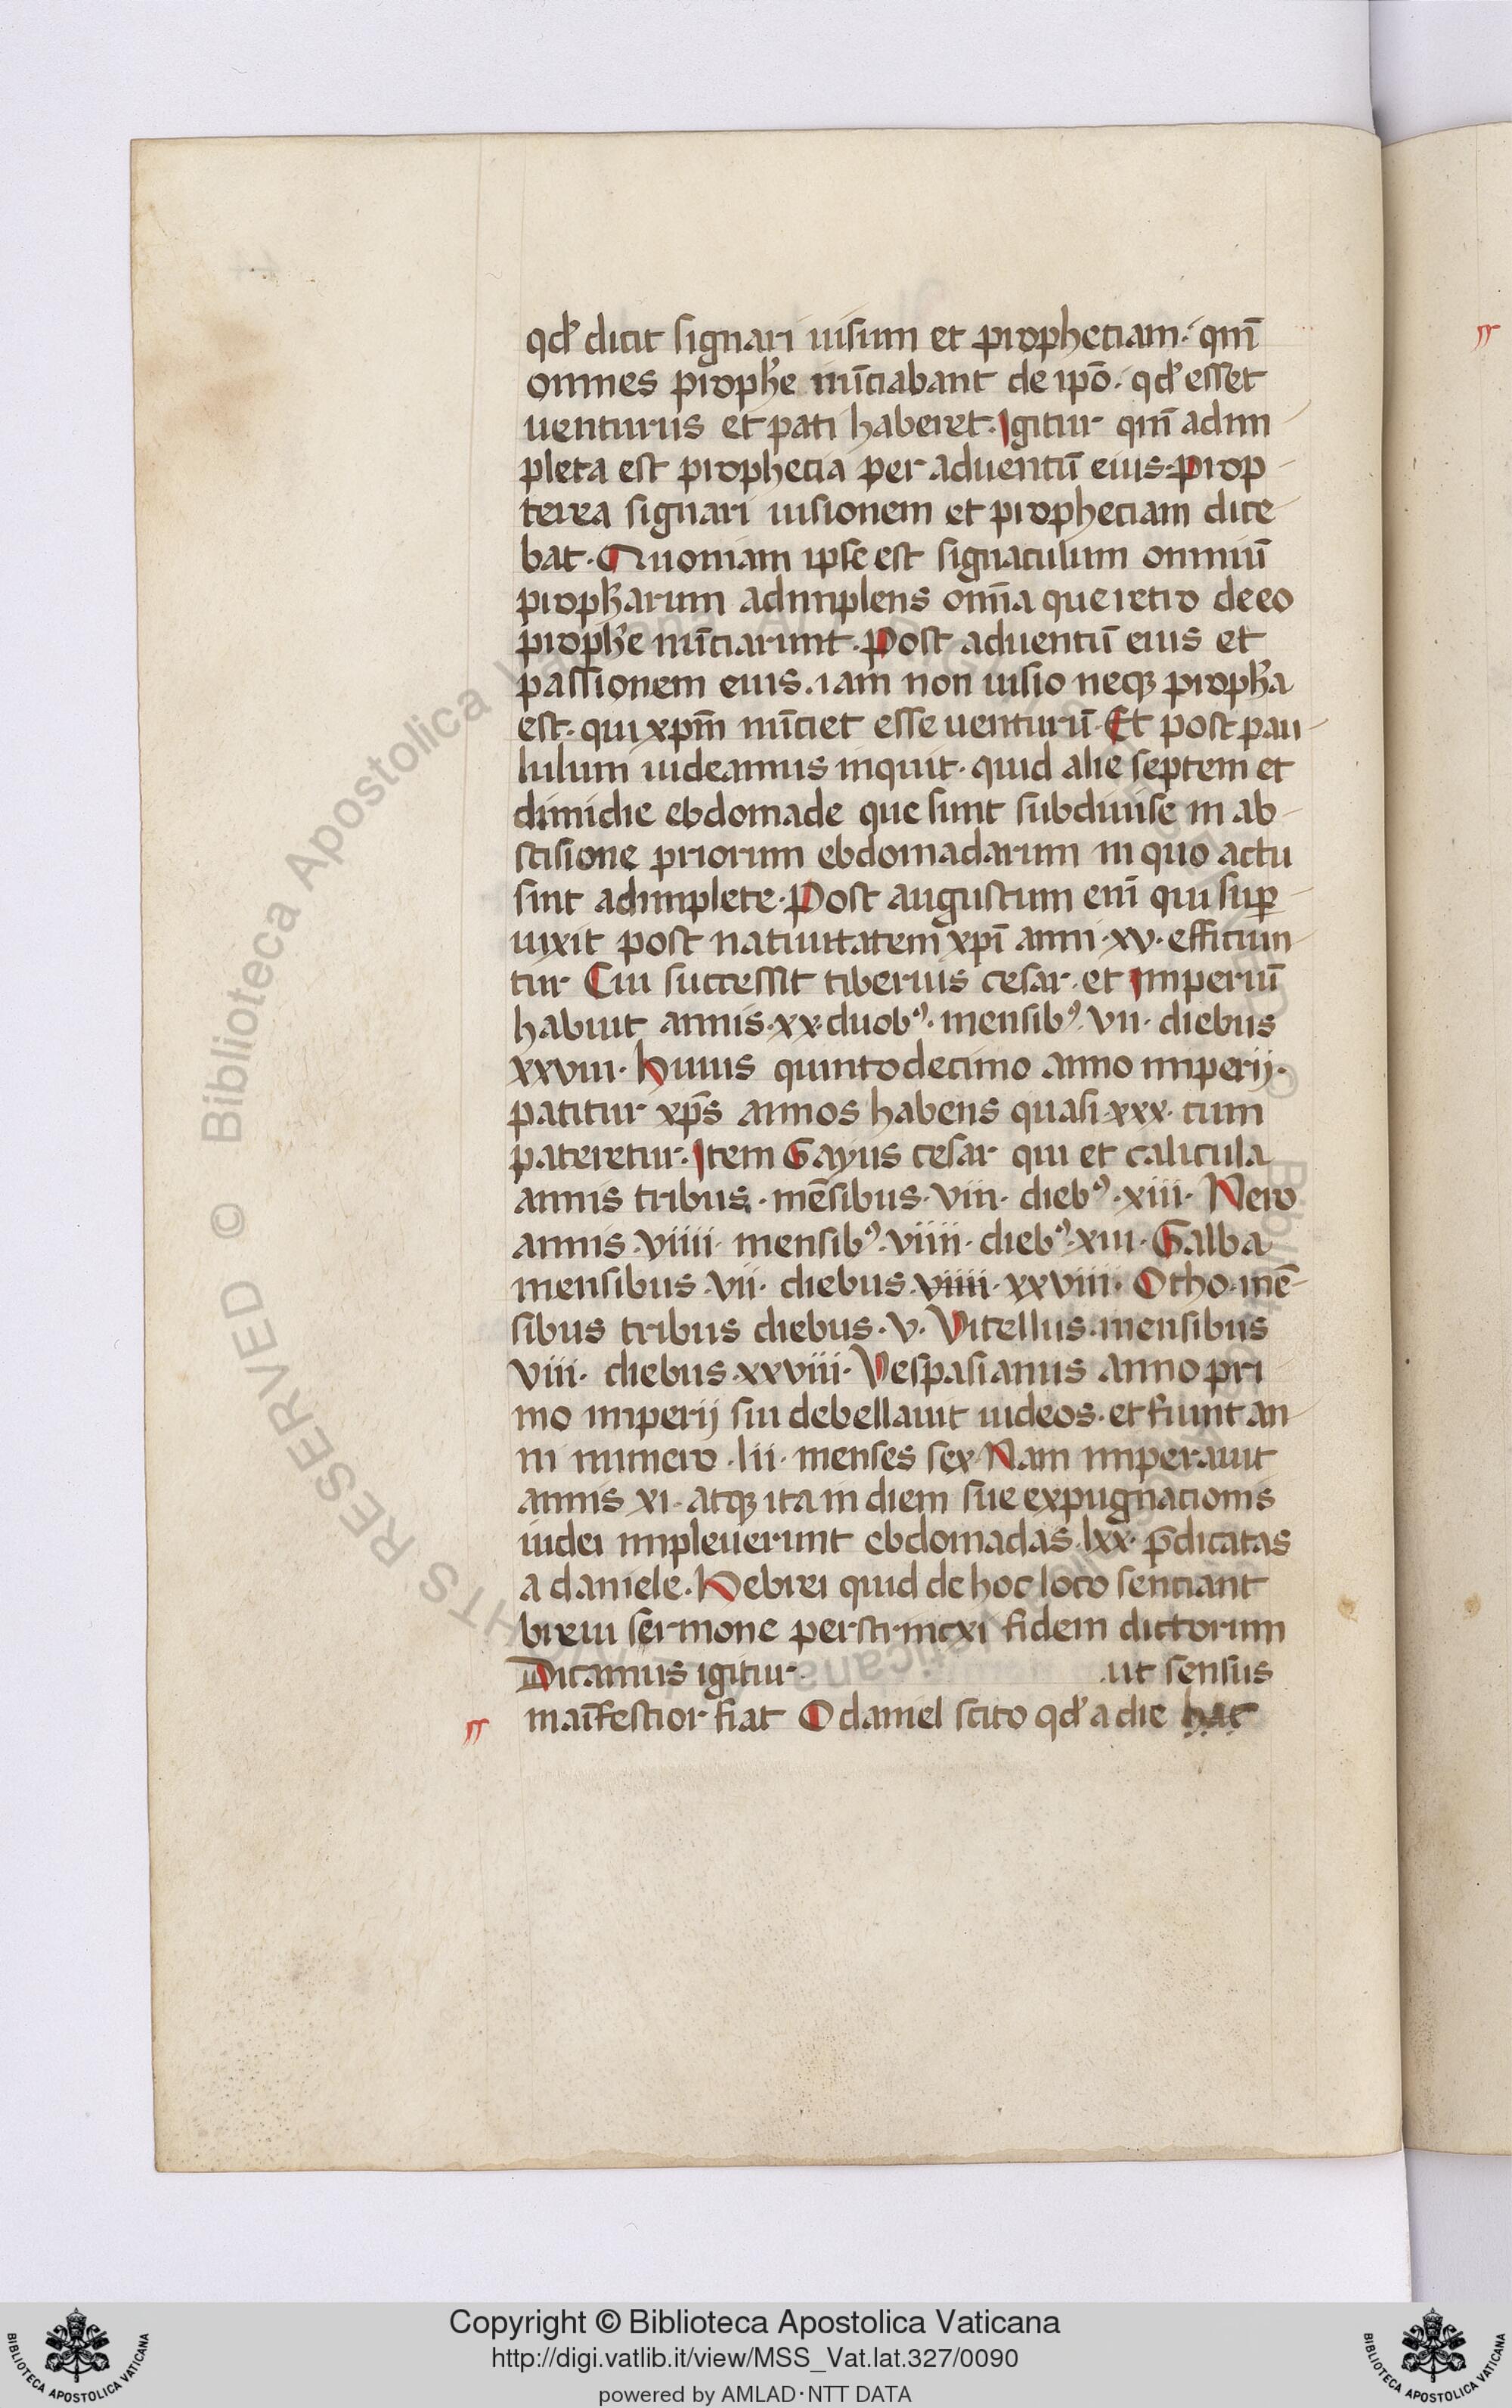 qd' dicit signari uisum et prophetiam. qm̄
omnes proph'e nūtiabant de ip̄o. qd' esset
uenturus et pati haberet. Igitur qm̄ adim
pleta est prophetia per aduentū eius. prop
terea signari uisionem et prophetiam dice
bat. Quoniam ipse est signaculum omniū
proph'arum adimplens om̄ia que retro de eo
proph'e nūtiarunt. Post aduentū eius et
passionem eius. iam non uisio neqꝫ proph'a
est. qui xp̄m nūtiet esse uenturū. Et post pau
lulum uideamus inquit. quid alie septem et
dimidie ebdomade que sunt subdiuise in ab
scisione priorum ebdomadarum in quo actu
sint adimplete. Post augustum eni᷈ qui suꝑ
uixit post natiuitatem xp̄i anni .xv. efficiun
tur Cui successit tiberius cesar. et Imperiū
habuit annis .xx. duobꝰ. mensibꝰ. vii. diebus
xxviii. Huius quintodecimo anno imperij.
patitur xp̄s annos habens quasi .xxx. cum
pateretur. Item Gayus cesar qui et calicula
annis tribus. mēsibus. viii. diebꝰ. xiii. Nero
annis. viiii. mensibꝰ. viiii. diebꝰ. xiii. Galba
mensibus. vii. diebus. viiii. xxviii. Otho. mē
sibus tribus diebus. v. Vitellus. mensibus
viii. diebus. xxviii. Vespasianus anno pri
mo imperij sui debellauit iudeos. et fiunt an
ni numero .lii. menses sex. Nam imperauit
annis xi. atqꝫ ita in diem sue expugnationis
iudei impleuerunt ebdomadas. lxx. p̄dicatas
a daniele. Hebrei quid de hoc loco sentiant
breui sermone perstrincxi fidem dictorum
Dicamus igitur. .ut sensus
maīfestior fiat O daniel scito qd' a die hac
Copyright © Biblioteca Apostolica Vaticana
http://digi.vatlib.it/view/MSS_Vat.lat.327/0090
powered by AMLAD·NTT DATA